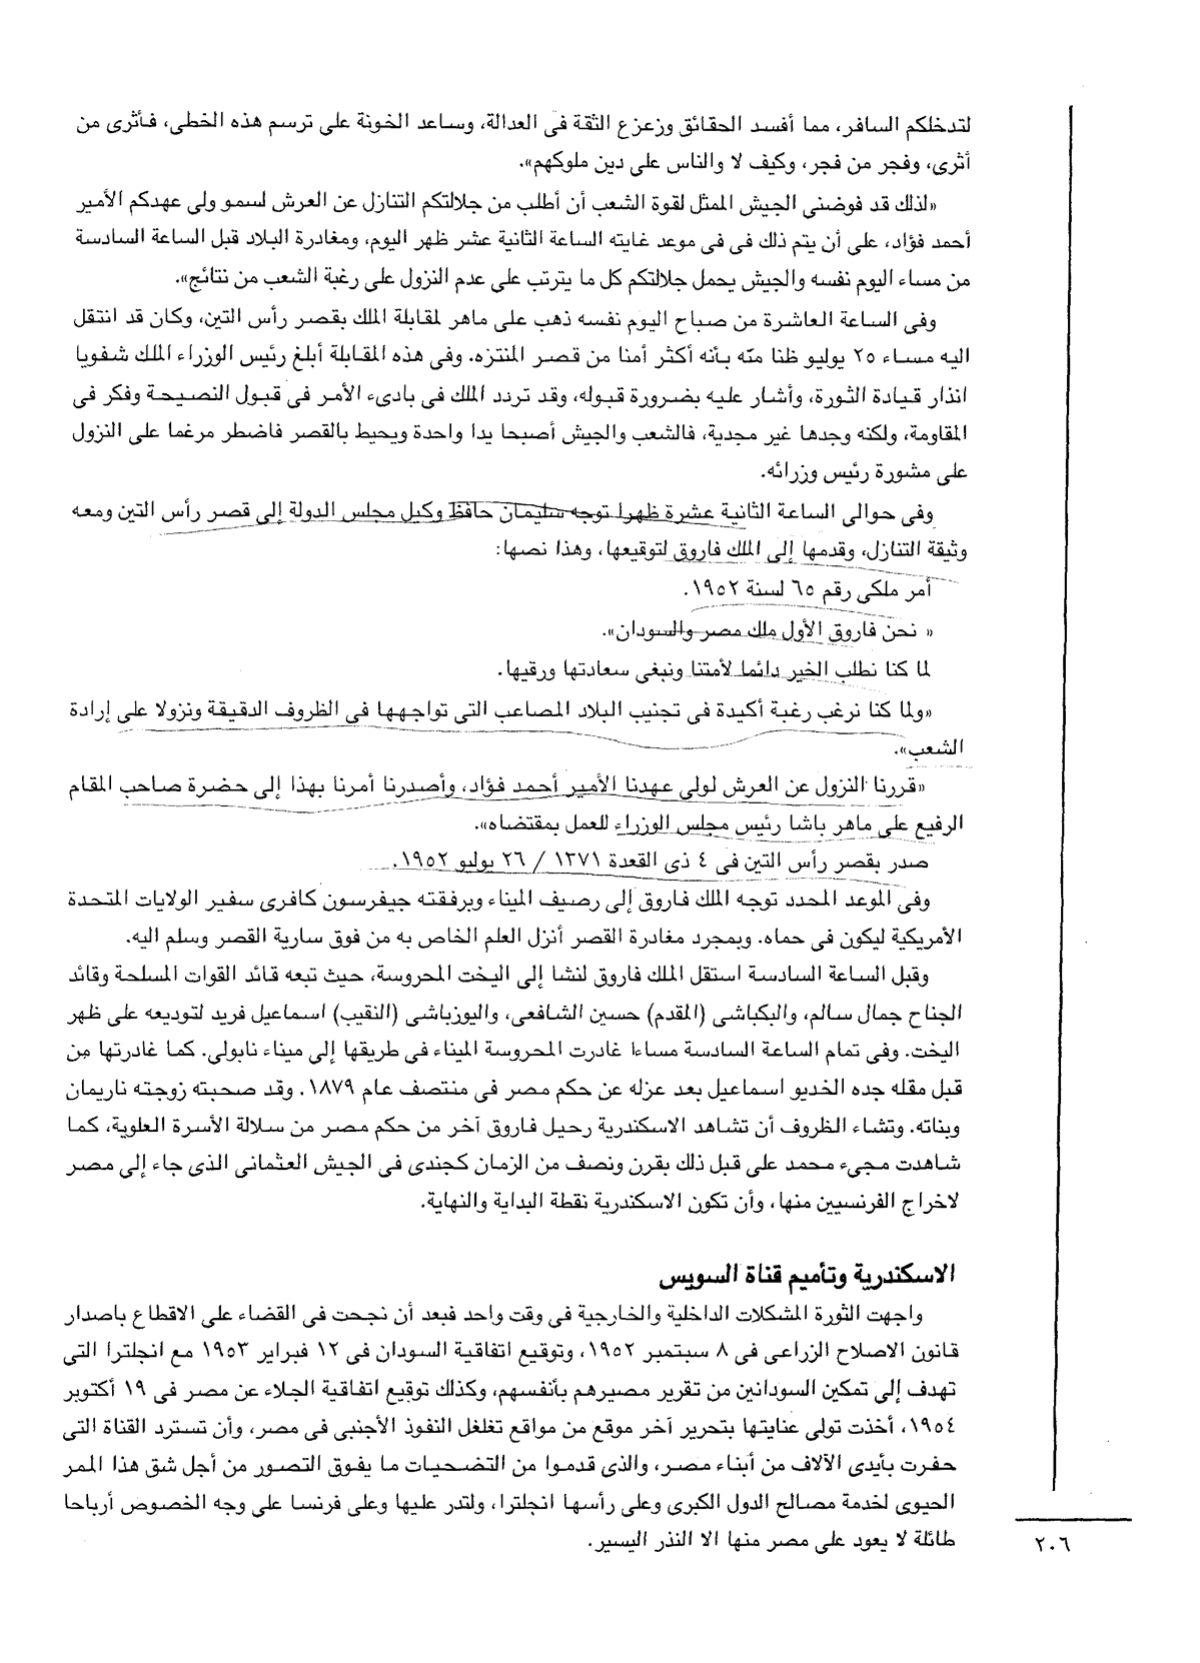 لتدخلكم السافر، مما أفسد الحقائق وزعزع الثقة فى العدالة، وساعد الخونة على ترسم هذه الخطى، فأثرى من
أثرى، وفجر من فجر، وكيف لا والناس على دين ملوكهم».
«لذلك قد فوضنى الجيش الممثل لقوة الشعب أن أطلب من جلالتكم التنازل عن العرش لسمو ولى عهدكم الأمير
أحمد فؤاد، على أن يتم ذلك فى فى موعد غايته الساعة الثانية عشر ظهر اليوم، ومغادرة البلاد قبل الساعة السادسة
من مساء اليوم نفسه والجيش يحمل جلالتكم كل ما يترتب على عدم النزول على رغبة الشعب من نتائج».
وفى الساعة العاشرة من صباح اليوم نفسه ذهب على ماهر لمقابلة الملك بقصر رأس التين، وكان قد انتقل
اليه مساء ٢٥ يوليو ظنا منه بأنه أكثر أمنا من قصر المنتزه. وفى هذه المقابلة أبلغ رئيس الوزراء الملك شفويا
انذار قيادة الثورة، وأشار عليه بضرورة قبوله، وقد تردد الملك فى بادىء الأمر فى قبول النصيحة وفكر فى
المقاومة، ولكنه وجدها غير مجدية، فالشعب والجيش أصبحا يدا واحدة ويحيط بالقصر فاضطر مرغما على النزول
على مشورة رئيس وزرائه.
وفى حوالى الساعة الثانية عشرة ظهرا توجه سليمان حافظ وكيل مجلس الدولة إلى قصر رأس التين ومعه
وثيقة التنازل، وقدمها إلى الملك فاروق لتوقيعها، وهذا نصها:
أمر ملكى رقم ٦٥ لسنة ١٩٥٢.
« نحن فاروق الأول ملك مصر والسودان».
لما كنا نطلب الخير دائما لأمتنا ونبغى سعادتها ورقيها.
«ولما كنا نرغب رغبة أكيدة فى تجنيب البلاد المصاعب التى تواجهها فى الظروف الدقيقة ونزولا على إرادة
الشعب».
«قررنا النزول عن العرش لولى عهدنا الأمير أحمد فؤاد، وأصدرنا أمرنا بهذا إلى حضرة صاحب المقام
الرفيع على ماهر باشا رئيس مجلس الوزراء للعمل بمقتضاه».
صدر بقصر رأس التين فى ٤ ذى القعدة ١٣٧١ / ٢٦ يوليو ١٩٥٢.
وفى الموعد المحدد توجه الملك فاروق إلى رصيف الميناء وبرفقته جيفرسون كافرى سفير الولايات المتحدة
الأمريكية ليكون فى حماه. وبمجرد مغادرة القصر أنزل العلم الخاص به من فوق سارية القصر وسلم اليه.
وقبل الساعة السادسة استقل الملك فاروق لنشا إلى اليخت المحروسة، حيث تبعه قائد القوات المسلحة وقائد
الجناح جمال سالم، والبكباشى (المقدم) حسين الشافعى، واليوزباشى (النقيب) اسماعيل فريد لتوديعه على ظهر
اليخت. وفى تمام الساعة السادسة مساءا غادرت المحروسة الميناء فى طريقها إلى ميناء نابولى. كما غادرتها من
قبل مقله جده الخديو اسماعيل بعد عزله عن حكم مصر فى منتصف عام ١٨٧٩. وقد صحبته زوجته ناريمان
وبناته. وتشاء الظروف أن تشاهد الاسكندرية رحيل فاروق آخر من حكم مصر من سلالة الأسرة العلوية، كما
شاهدت مجىء محمد على قبل ذلك بقرن ونصف من الزمان كجندى فى الجيش العثمانى الذى جاء إلى مصر
لاخراج الفرنسيين منها، وأن تكون الاسكندرية نقطة البداية والنهاية.
الاسكندرية وتأميم قناة السويس
واجهت الثورة المشكلات الداخلية والخارجية فى وقت واحد فبعد أن نجحت فى القضاء على الاقطاع باصدار
قانون الاصلاح الزراعى فى ٨ سبتمبر ١٩٥٢، وتوقيع اتفاقية السودان فى ١٢ فبراير ١٩٥٣ مع انجلترا التى
تهدف إلى تمكين السودانين من تقرير مصيرهم بأنفسهم، وكذلك توقيع اتفاقية الجلاء عن مصر فى ١٩ أكتوبر
١٩٥٤، أخذت تولى عنايتها بتحرير آخر موقع من مواقع تغلغل النفوذ الأجنبى فى مصر، وأن تسترد القناة التى
حفرت بأيدى الآلاف من أبناء مصر، والذى قدموا من التضحيات ما يفوق التصور من أجل شق هذا الممر
الحيوى لخدمة مصالح الدول الكبرى وعلى رأسها انجلترا، ولتدر عليها وعلى فرنسا على وجه الخصوص أرباحا
طائلة لا يعود على مصر منها الا النذر اليسير.
٢٠٦